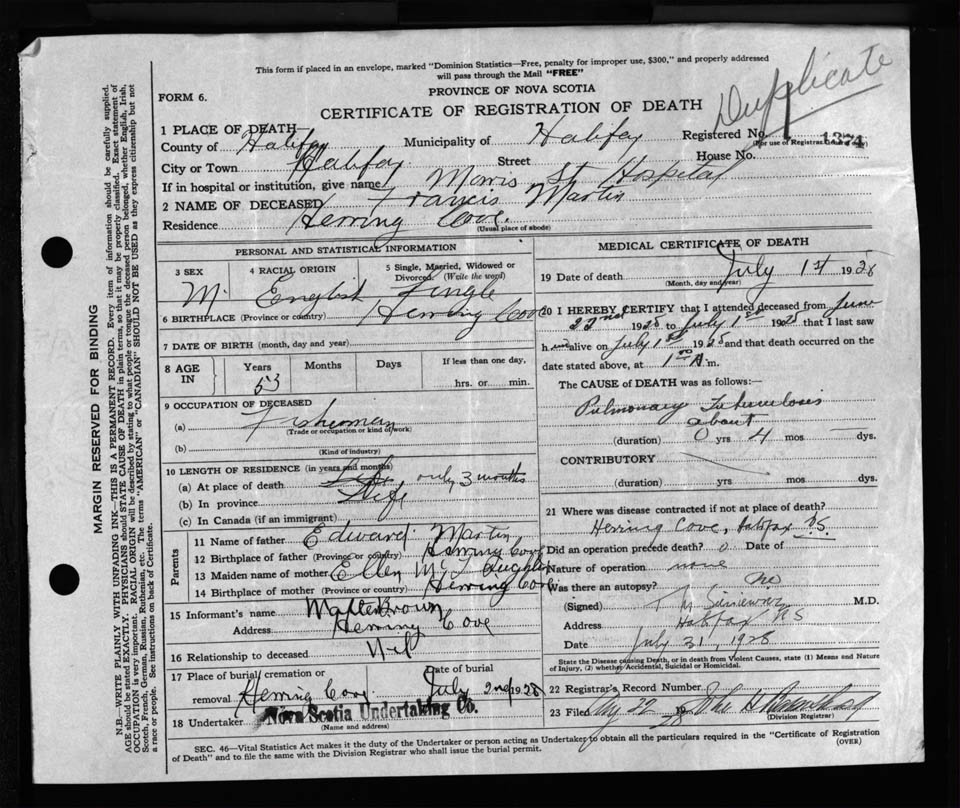 This form if placed in an envelope, marked "Dominion Statistics—Free, penalty for improper use, $300," and properly addressed
will pass through the Mail "FREE"
PROVINCE OF NOVA SCOTIA
FORM 6.
CERTIFICATE OF REGISTRATION OF DEATH
Duplicate
1 PLACE OF DEATH
County of Halifax Municipality of Halifax Registered No. 1274
(For use of Registrar General only)
City or Town Halifax Street House No.
If in hospital or institution, give name Morris St. Hospital
2 NAME OF DECEASED Francis Martin
Residence Herring Cove.
(Usual place of abode)
PERSONAL AND STATISTICAL INFORMATION
3 SEX 4 RACIAL ORIGIN 5 Single, Married, Widowed or
Divorced. (Write the word)
M. English Single
6 BIRTHPLACE (Province or country) Herring Cove
7 DATE OF BIRTH (month, day and year)
8 AGE IN Years Months Days If less than one day,
53 hrs. or min.
9 OCCUPATION OF DECEASED
(a) Fisherman
(Trade or occupation or kind of work)
(b)
(Kind of industry)
10 LENGTH OF RESIDENCE (in years and months)
(a) At place of death only 3 months
(b) In province Life
(c) In Canada (if an immigrant)
Parents
11 Name of father Edward Martin
12 Birthplace of father (Province or country) Herring Cove
13 Maiden name of mother Ellen McLaughlin
14 Birthplace of mother (Province or country) Herring Cove
15 Informant's name Walter Brown
Address Herring Cove
16 Relationship to deceased Nil
17 Place of burial, cremation or Date of burial
removal Herring Cove. July 2nd 1928
18 Undertaker Nova Scotia Undertaking Co.
(Name and address)
MEDICAL CERTIFICATE OF DEATH
19 Date of death July 1st 1928
(Month, day and year)
20 I HEREBY CERTIFY that I attended deceased from June
22nd 1928 to July 1st 1928 that I last saw
him alive on July 1st 1928 and that death occurred on the
date stated above, at 1 A.m.
The CAUSE of DEATH was as follows:—
Pulmonary Tuberculosis
about
(duration) 0 yrs 4 mos dys.
CONTRIBUTORY
(duration) yrs mos dys.
21 Where was disease contracted if not at place of death?
Herring Cove, Halifax NS
Did an operation precede death? 0 Date of
Nature of operation none
Was there an autopsy? no
(Signed) M.D.
Address Halifax NS
Date July 31, 1928
State the Disease causing Death, or in death from Violent Causes, state (1) Means and Nature
of Injury, (2) whether Accidental, Suicidal or Homicidal.
22 Registrar's Record Number
23 Filed 22 19 28
(Division Registrar)
SEC. 46—Vital Statistics Act makes it the duty of the Undertaker or person acting as Undertaker to obtain all the particulars required in the "Certificate of Registration
of Death" and to file the same with the Division Registrar who shall issue the burial permit.
(OVER)
MARGIN RESERVED FOR BINDING
N.B.—WRITE PLAINLY WITH UNFADING INK—THIS IS A PERMANENT RECORD. Every item of information should be carefully supplied.
AGE should be stated EXACTLY. PHYSICIANS should STATE CAUSE OF DEATH in plain terms, so that it may be properly classified. Exact statement of
OCCUPATION is very important. RACIAL ORIGIN will be described by stating to what people or tongue the deceased person belonged, whether English, Irish,
Scotch, French, German, Russian, Ruthenian, etc. The terms "AMERICAN" or "CANADIAN" SHOULD NOT BE USED as they express citizenship but not
a race or people. See instructions on back of Certificate.